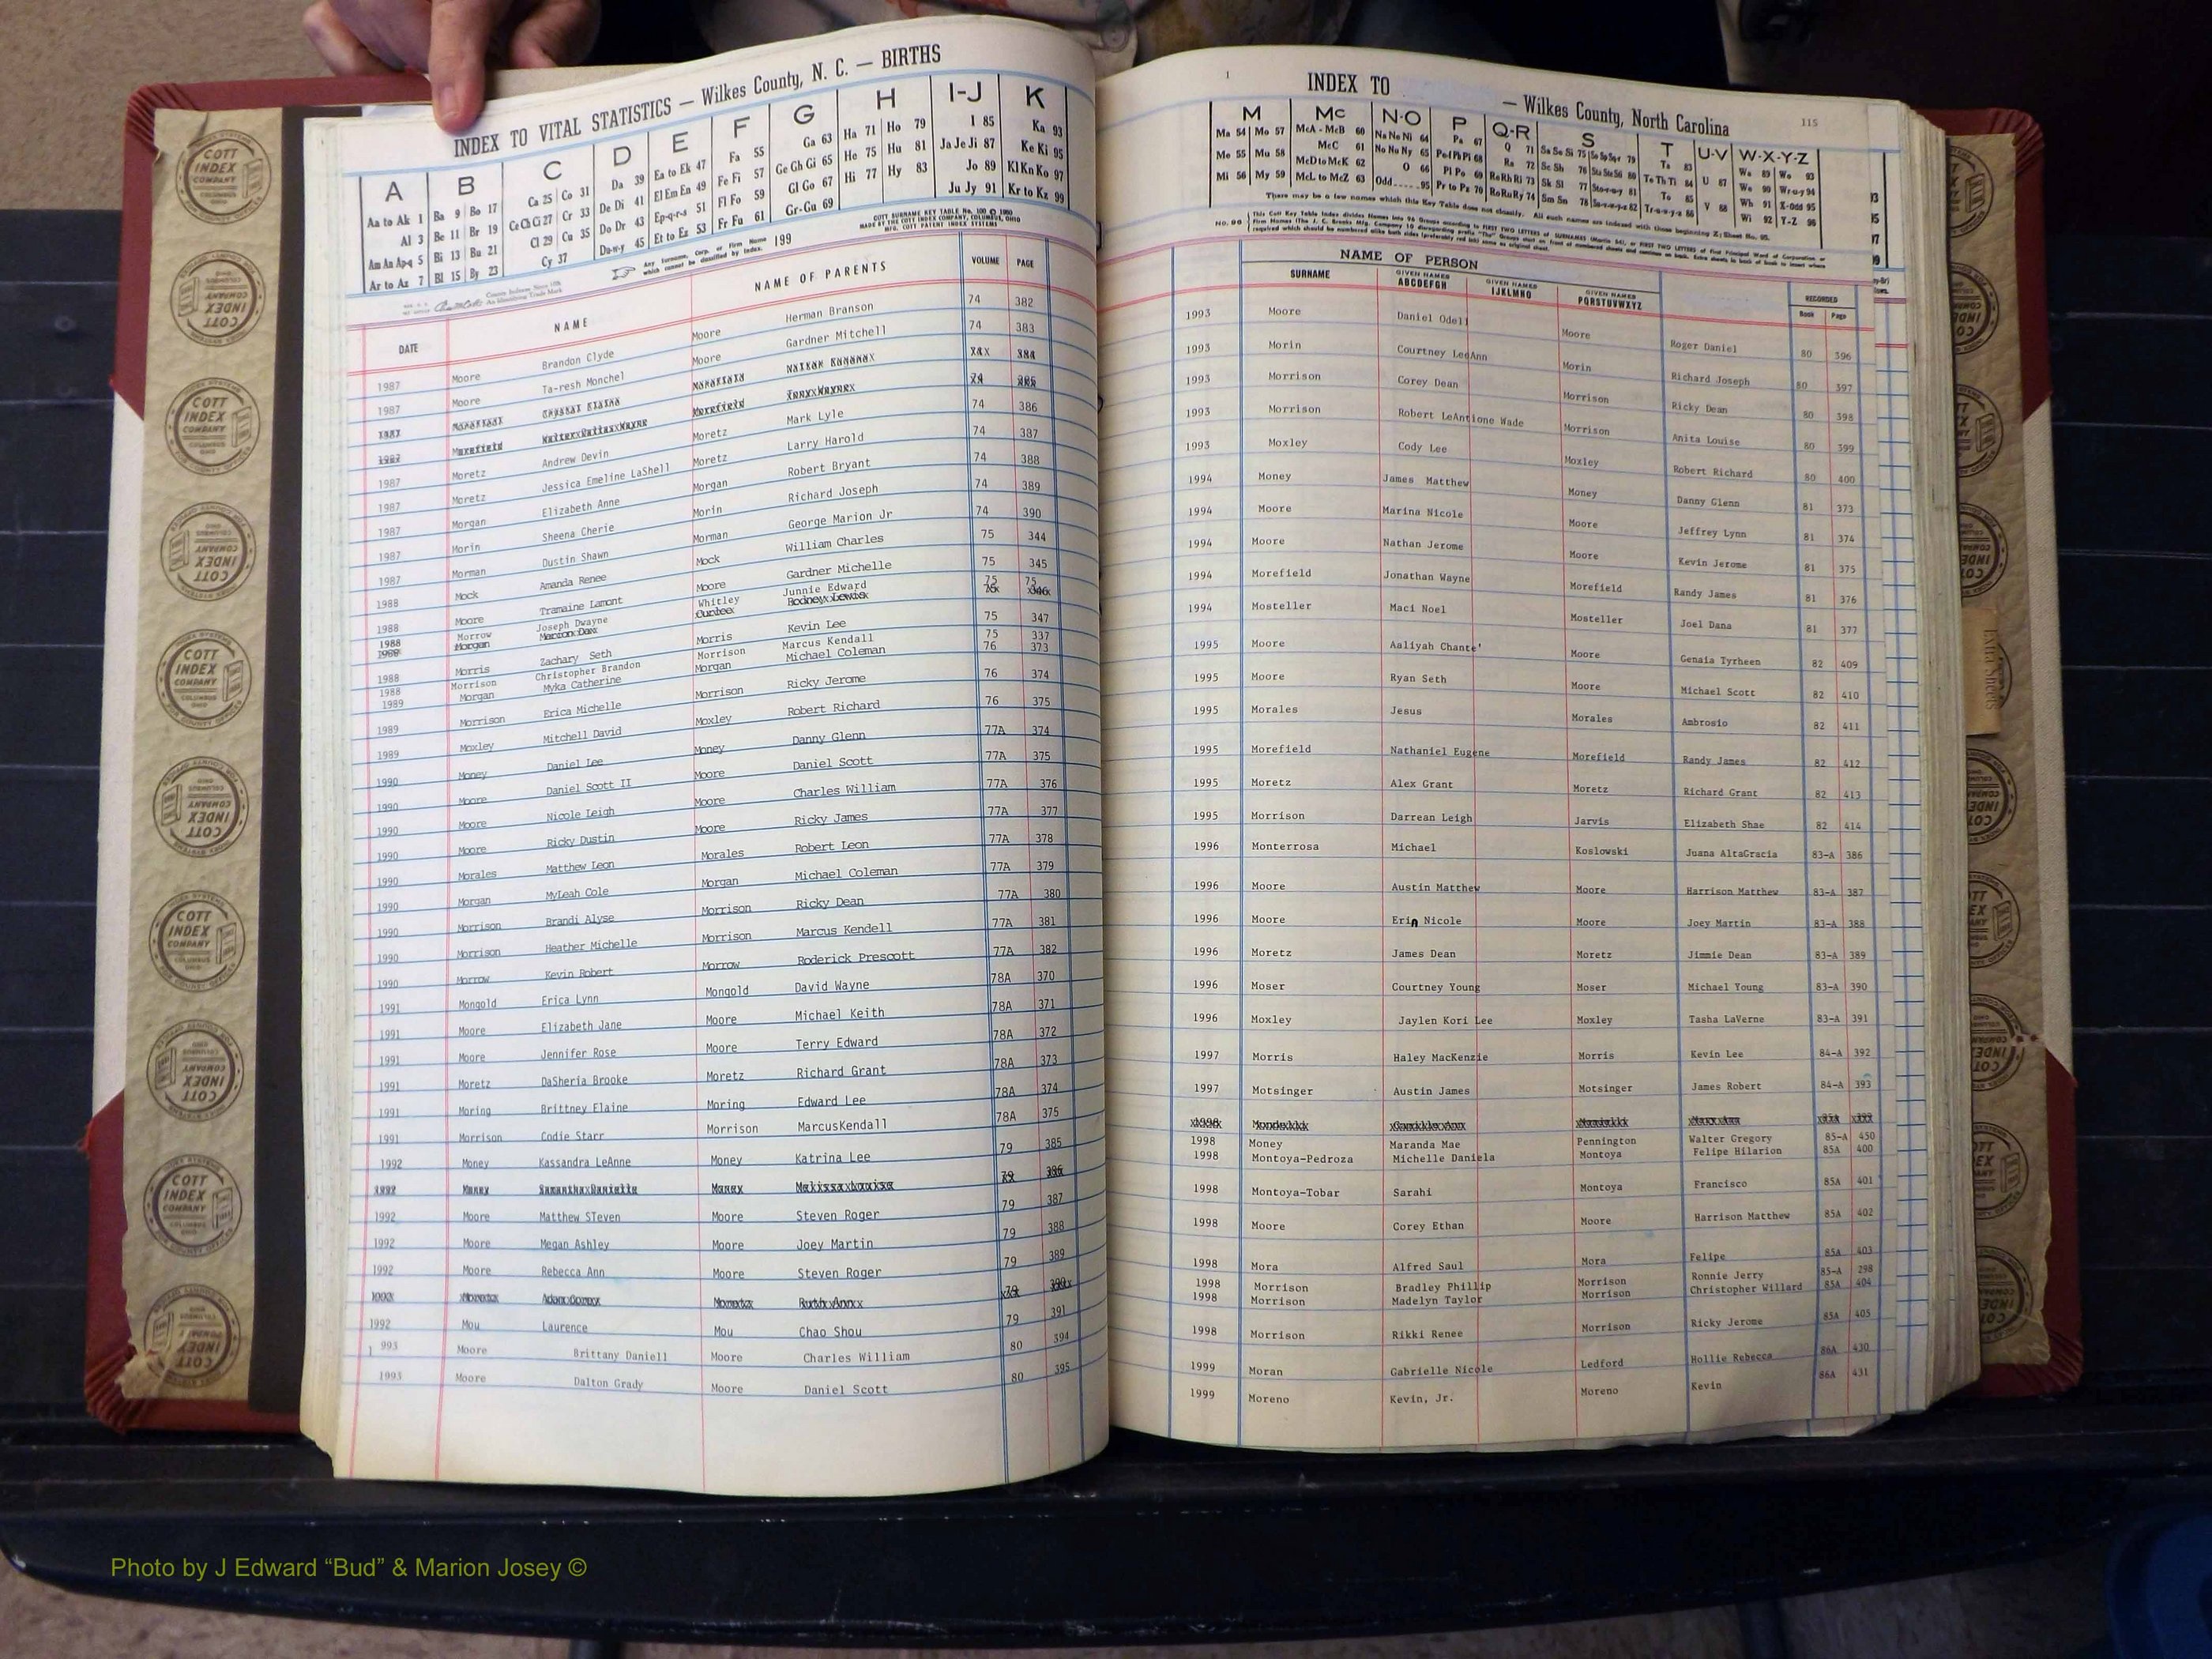 INDEX TO VITAL STATISTICS — Wilkes County, N. C. — BIRTHS
A B C D E F G H I-J K
Aa to Ak 1 Ba 9 Bo 17 Ca 25 Co 31 Da 39 Ea to Ek 47 Fa 55 Ga 63 Ha 71 Ho 79 I 85 Ka 93
Al 3 Be 11 Br 19 Ce Ch Ci 27 Cr 33 De Di 41 El Em En 49 Fe Fi 57 Ge Gh Gi 65 He 75 Hu 81 Ja Je Ji 87 Ke Ki 95
Am An Ap-q 5 Bi 13 Bu 21 Cl 29 Cu 35 Do Dr 43 Ep-q-r-s 51 Fl Fo 59 Gl Go 67 Hi 77 Hy 83 Jo 89 Kl Kn Ko 97
Ar to Az 7 Bl 15 By 23 Cy 37 Du-w-y 45 Et to Ez 53 Fr Fu 61 Gr-Gu 69 Ju Jy 91 Kr to Kz 99
Any Surname, Corp. or Firm Name which cannot be classified by Index. 199
COTT SURNAME KEY TABLE No. 100 © 1980
MADE BY THE COTT INDEX COMPANY, COLUMBUS, OHIO
MFG. COTT PATENT INDEX SYSTEMS
DATE NAME NAME OF PARENTS VOLUME PAGE
1987 Moore Brandon Clyde Moore Herman Branson 74 382
1987 Moore Ta-resh Monchel Moore Gardner Mitchell 74 383
1987 384
1987 Morefield Morefield 74 385
1987 Moretz Andrew Devin Moretz Mark Lyle 74 386
1987 Moretz Jessica Emeline LaShell Moretz Larry Harold 74 387
1987 Morgan Elizabeth Anne Morgan Robert Bryant 74 388
1987 Morin Sheena Cherie Morin Richard Joseph 74 389
1987 Morman Dustin Shawn Morman George Marion Jr 74 390
1988 Mock Amanda Renee Mock William Charles 75 344
1988 Moore Tramaine Lamont Moore Gardner Michelle 75 345
1988 Morrow Joseph Dwayne Whitley Junnie Edward 75 75
1988 Morgan Rodney Lewis 346
1988 Morris Zachary Seth Morris Kevin Lee 75 347
1988 Morrison Christopher Brandon Morrison Marcus Kendall 75 337
1989 Morgan Myka Catherine Morgan Michael Coleman 76 373
1989 Morrison Erica Michelle Morrison Ricky Jerome 76 374
1989 Moxley Mitchell David Moxley Robert Richard 76 375
1990 Money Daniel Lee Money Danny Glenn 77A 374
1990 Moore Daniel Scott II Moore Daniel Scott 77A 375
1990 Moore Nicole Leigh Moore Charles William 77A 376
1990 Moore Ricky Dustin Moore Ricky James 77A 377
1990 Morales Matthew Leon Morales Robert Leon 77A 378
1990 Morgan MyLeah Cole Morgan Michael Coleman 77A 379
1990 Morrison Brandi Alyse Morrison Ricky Dean 77A 380
1990 Morrison Heather Michelle Morrison Marcus Kendell 77A 381
1990 Morrow Kevin Robert Morrow Roderick Prescott 77A 382
1991 Mongold Erica Lynn Mongold David Wayne 78A 370
1991 Moore Elizabeth Jane Moore Michael Keith 78A 371
1991 Moore Jennifer Rose Moore Terry Edward 78A 372
1991 Moretz DaSheria Brooke Moretz Richard Grant 78A 373
1991 Moring Brittney Elaine Moring Edward Lee 78A 374
1991 Morrison Codie Starr Morrison MarcusKendall 78A 375
1992 Money Kassandra LeAnne Money Katrina Lee 79 385
1992 Money Samantha Danielle Money Melissa Louise 79 386
1992 Moore Matthew STeven Moore Steven Roger 79 387
1992 Moore Megan Ashley Moore Joey Martin 79 388
1992 Moore Rebecca Ann Moore Steven Roger 79 389
Moretz Moretz Ruth Ann 79 390
1992 Mou Laurence Mou Chao Shou 79 391
1993 Moore Brittany Daniell Moore Charles William 80 394
1993 Moore Dalton Grady Moore Daniel Scott 80 395
1
INDEX TO — Wilkes County, North Carolina 115
M Mc N-O P Q-R S T U-V W-X-Y-Z
Ma 54 Mo 57 McA - McB 60 Na Ne Ni 64 Pa 67 Q 71 Sa Sc Si 75 79 Ta 83 Wa 89 Wo 93
Me 55 Mu 58 McC 61 No Nu Ny 65 Pe-f Ph Pi 68 Ra 72 Se Sh 76 Sta Ste Sti 80 Te Th Ti 84 U 87 We 90 Wr-u-y 94
Mi 56 My 59 McD to McK 62 O 66 Pl Po 69 Re Rh Ri 73 Sk Sl 77 Sto-r-u-y 81 To 85 V 88 Wh 91 X-Odd 95
McL to McZ 63 Odd.....95 Pr to Ps 70 Ro Ru Ry 74 Sm Sn 78 Su-v-w-y-z 82 Tr-u-w-y-z 86 Wi 92 Y-Z 96
There may be a few names which this Key Table does not classify. All such names are indexed with those beginning Z; Sheet No. 95.
NAME OF PERSON
SURNAME GIVEN NAMES ABCDEFGH GIVEN NAMES IJKLMNO GIVEN NAMES PQRSTUVWXYZ RECORDED Book Page
1993 Moore Daniel Odell Moore Roger Daniel 80 396
1993 Morin Courtney LeeAnn Morin Richard Joseph 80 397
1993 Morrison Corey Dean Morrison Ricky Dean 80 398
1993 Morrison Robert LeAntione Wade Morrison Anita Louise 80 399
1993 Moxley Cody Lee Moxley Robert Richard 80 400
1994 Money James Matthew Money Danny Glenn 81 373
1994 Moore Marina Nicole Moore Jeffrey Lynn 81 374
1994 Moore Nathan Jerome Moore Kevin Jerome 81 375
1994 Morefield Jonathan Wayne Morefield Randy James 81 376
1994 Mosteller Maci Noel Mosteller Joel Dana 81 377
1995 Moore Aaliyah Chante' Moore Genaia Tyrheen 82 409
1995 Moore Ryan Seth Moore Michael Scott 82 410
1995 Morales Jesus Morales Ambrosio 82 411
1995 Morefield Nathaniel Eugene Morefield Randy James 82 412
1995 Moretz Alex Grant Moretz Richard Grant 82 413
1995 Morrison Darrean Leigh Jarvis Elizabeth Shae 82 414
1996 Monterrosa Michael Koslowski Juana AltaGracia 83-A 386
1996 Moore Austin Matthew Moore Harrison Matthew 83-A 387
1996 Moore Erin Nicole Moore Joey Martin 83-A 388
1996 Moretz James Dean Moretz Jimmie Dean 83-A 389
1996 Moser Courtney Young Moser Michael Young 83-A 390
1996 Moxley Jaylen Kori Lee Moxley Tasha LaVerne 83-A 391
1997 Morris Haley MacKenzie Morris Kevin Lee 84-A 392
1997 Motsinger Austin James Motsinger James Robert 84-A 393
1998 85A 399
1998 Money Maranda Mae Pennington Walter Gregory 85-A 450
1998 Montoya-Pedroza Michelle Daniela Montoya Felipe Hilarion 85A 400
1998 Montoya-Tobar Sarahi Montoya Francisco 85A 401
1998 Moore Corey Ethan Moore Harrison Matthew 85A 402
1998 Mora Alfred Saul Mora Felipe 85A 403
1998 Morrison Bradley Phillip Morrison Ronnie Jerry 85-A 298
1998 Morrison Madelyn Taylor Morrison Christopher Willard 85A 404
1998 Morrison Rikki Renee Morrison Ricky Jerome 85A 405
1999 Moran Gabrielle Nicole Ledford Hollie Rebecca 86A 430
1999 Moreno Kevin, Jr. Moreno Kevin 86A 431
COTT INDEX COMPANY COLUMBUS OHIO
Extra Sheets
Photo by J Edward “Bud” & Marion Josey ©